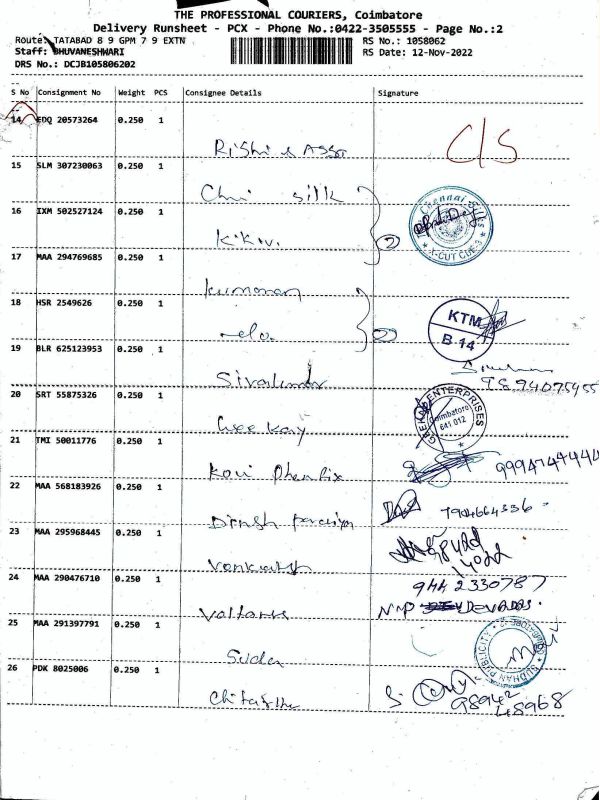 THE PROFESSIONAL COURIERS, Coimbatore
Delivery Runsheet - PCX - Phone No.:0422-3505555 - Page No.:2
Route: TATABAD 8 9 GPM 7 9 EXTN
RS No.: 1058062
Staff: BHUVANESHWARI
RS Date: 12-Nov-2022
DRS No.: DCJB105806202
S No Consignment No Weight PCS Consignee Details Signature
14 EDQ 20573264 0.250 1
Rishi & Asso
C/S
15 SLM 307230063 0.250 1
silk
16 IXM 502527124 0.250 1
Chennai Silks
X-CUT CBE-9
K.K.V.
2
17 MAA 294769685 0.250 1
Kumaran
18 HSR 2549626 0.250 1
KTM
B-14
2
19 BLR 625123953 0.250 1
Sivakumar
9894075455
20 SRT 55875326 0.250 1
ENTERPRISES
Coimbatore
641 012
Gee Kay
21 TMI 50011776 0.250 1
22 MAA 568183926 0.250 1
Dinesh
7904664336
23 MAA 295968445 0.250 1
Venkatesh
24 MAA 290476710 0.250 1
944 2330787
DEVADAS.
25 MAA 291397791 0.250 1
SUDHAN PUBLICITY
26 PDK 8025006 0.250 1
98942
48968